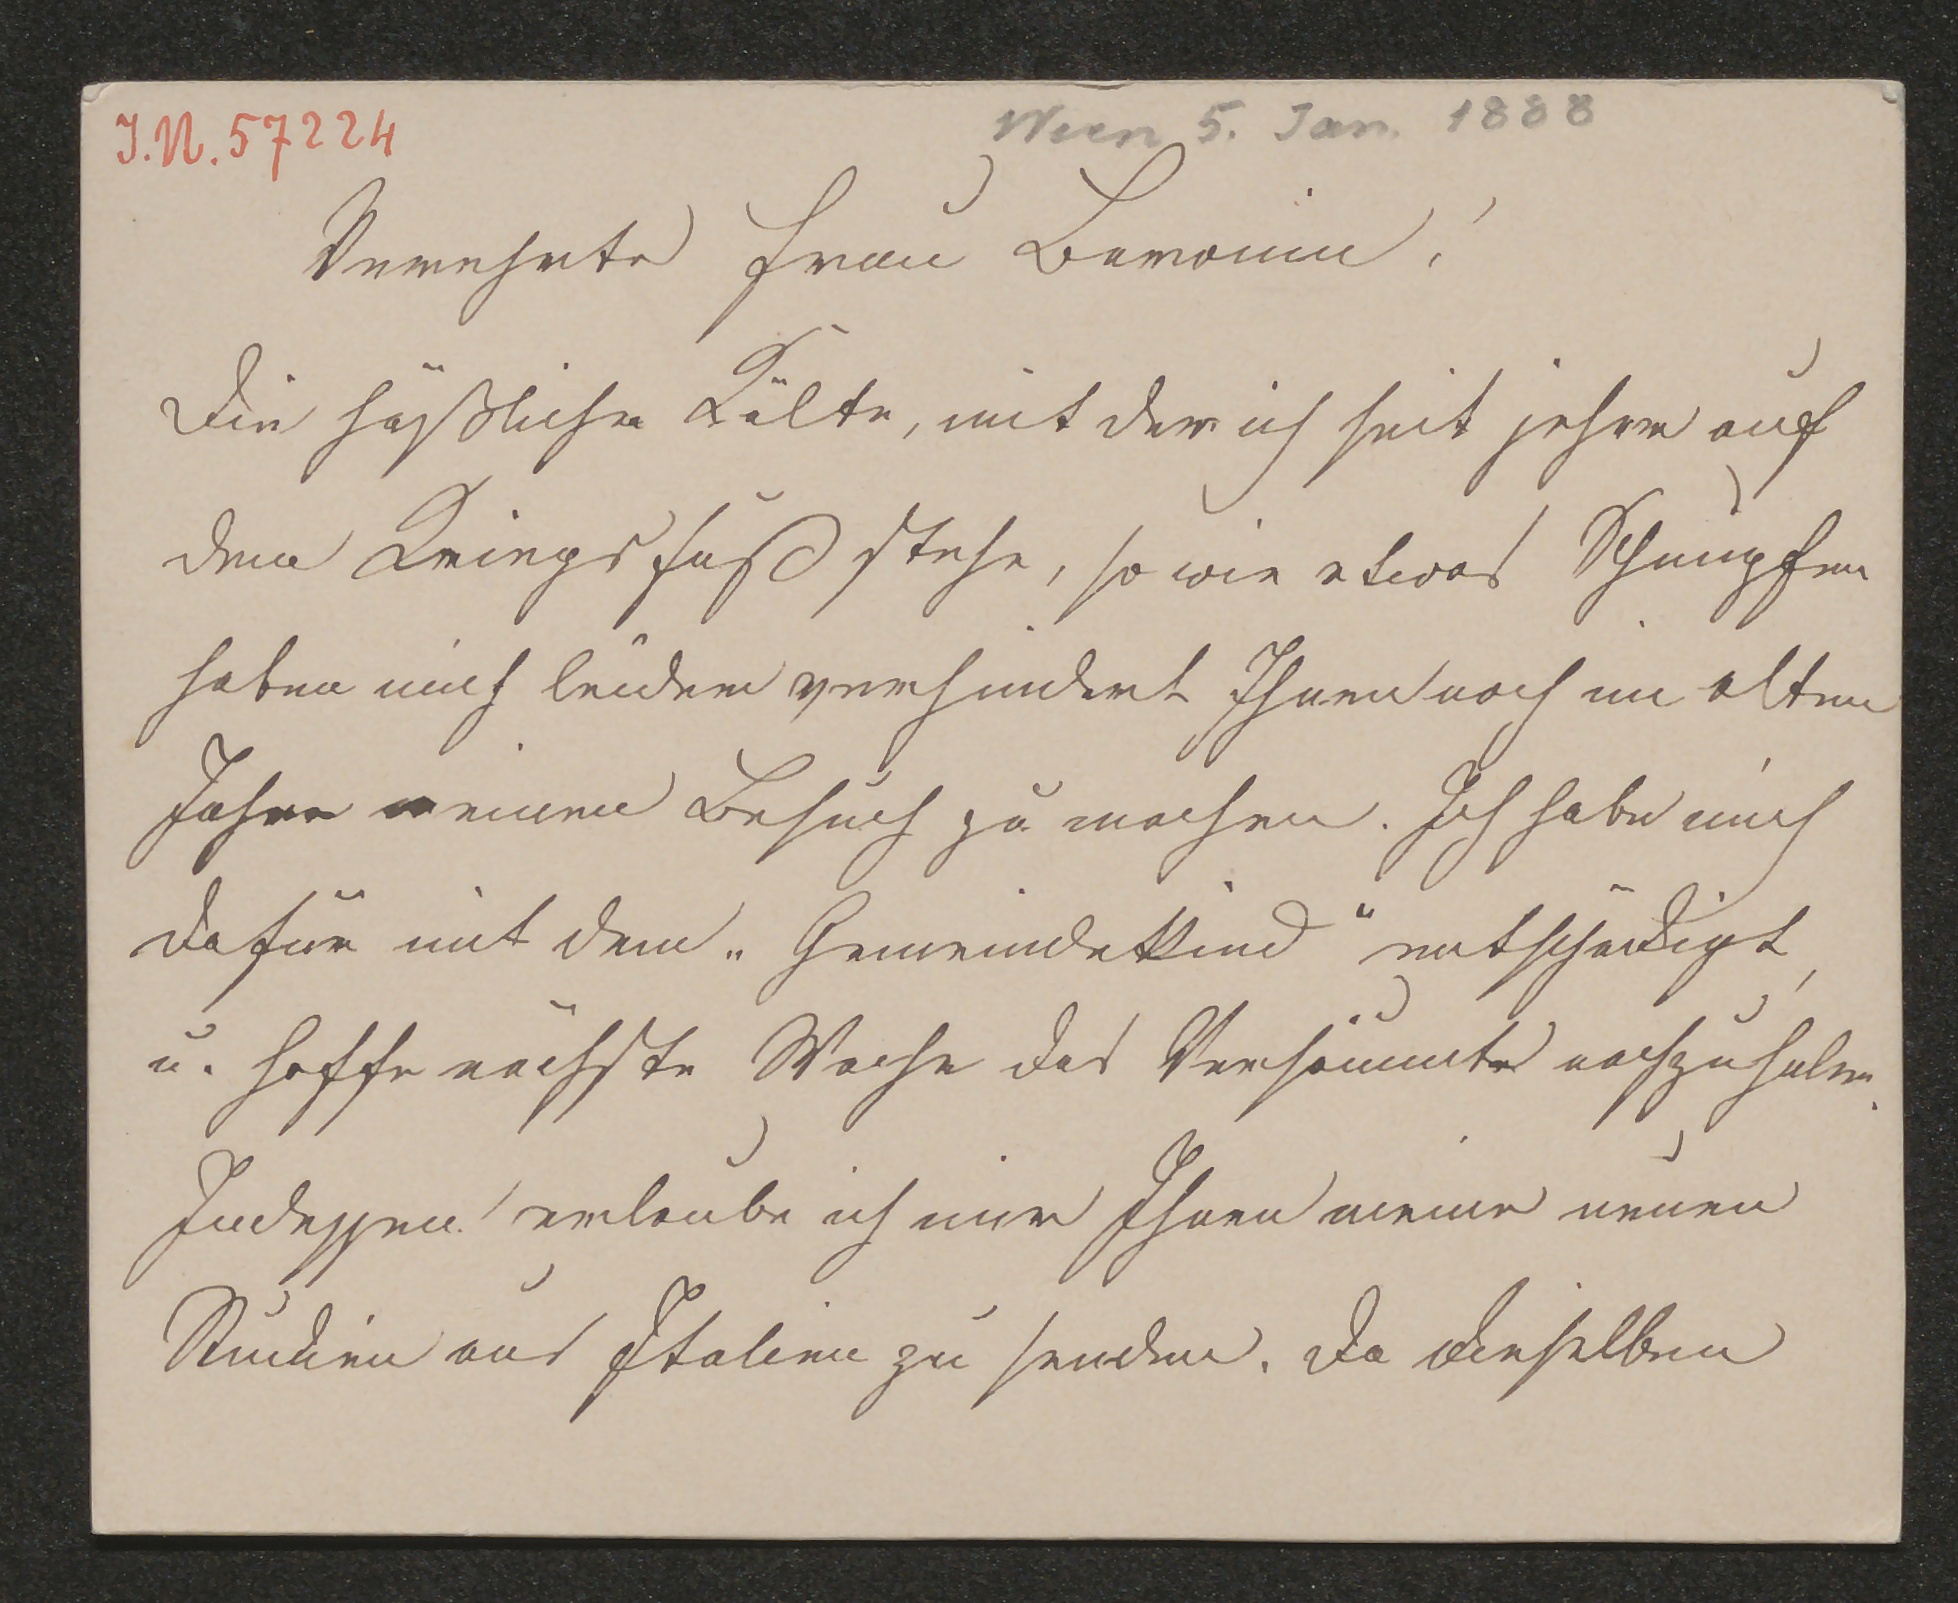 I.N. 57224
Wien 5. Jan. 1888
Verehrte Frau Baronin!
Die häßliche Kälte, mit der ich seit jeher auf
dem Kriegsfuß stehe, so wie etwas Schnupfen
haben mich leider verhindert Ihnen noch im alten
Jahre meinen Besuch zu machen. Ich habe mich
dafür mit dem „Gemeindekind“ entschädigt,
u. hoffe nächste Woche das Versäumte nachzuholen.
Indessen erlaube ich mir Ihnen meine neuen
Studien aus Italien zu senden. Da dieselben